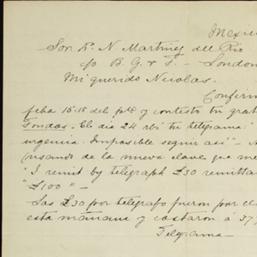 Mexico
Sor Dn. N Martinez del Rio
c/o B. G. & S. - London
Mi querido Nicolas.
Confirm
fcha 15.18 del ppdo y contesto tu grat
Fondos. El dia 24 rbi tu telegrama
urgencia. Imposible seguir asi" - A
visando de la nueva clave que me
"I remit by telegraph £30 remittan
"£100" -
Las £30 por telegrafo fueron por cl
esta mañana y costaron á 37
Telegrama -